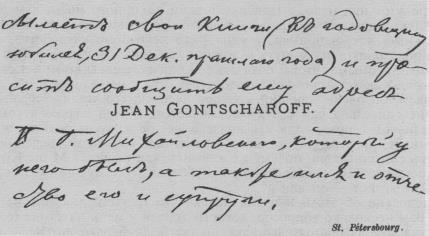 сылаетъ свои книги (въ годовщину
юбилея, 31 Дек. прошлаго года) и про-
ситъ сообщить ему адресъ
JEAN GONTSCHAROFF.
г. Михайловскаго, который у
него былъ, а также имя и отче-
ство его и супруги.
St. Pétersbourg.